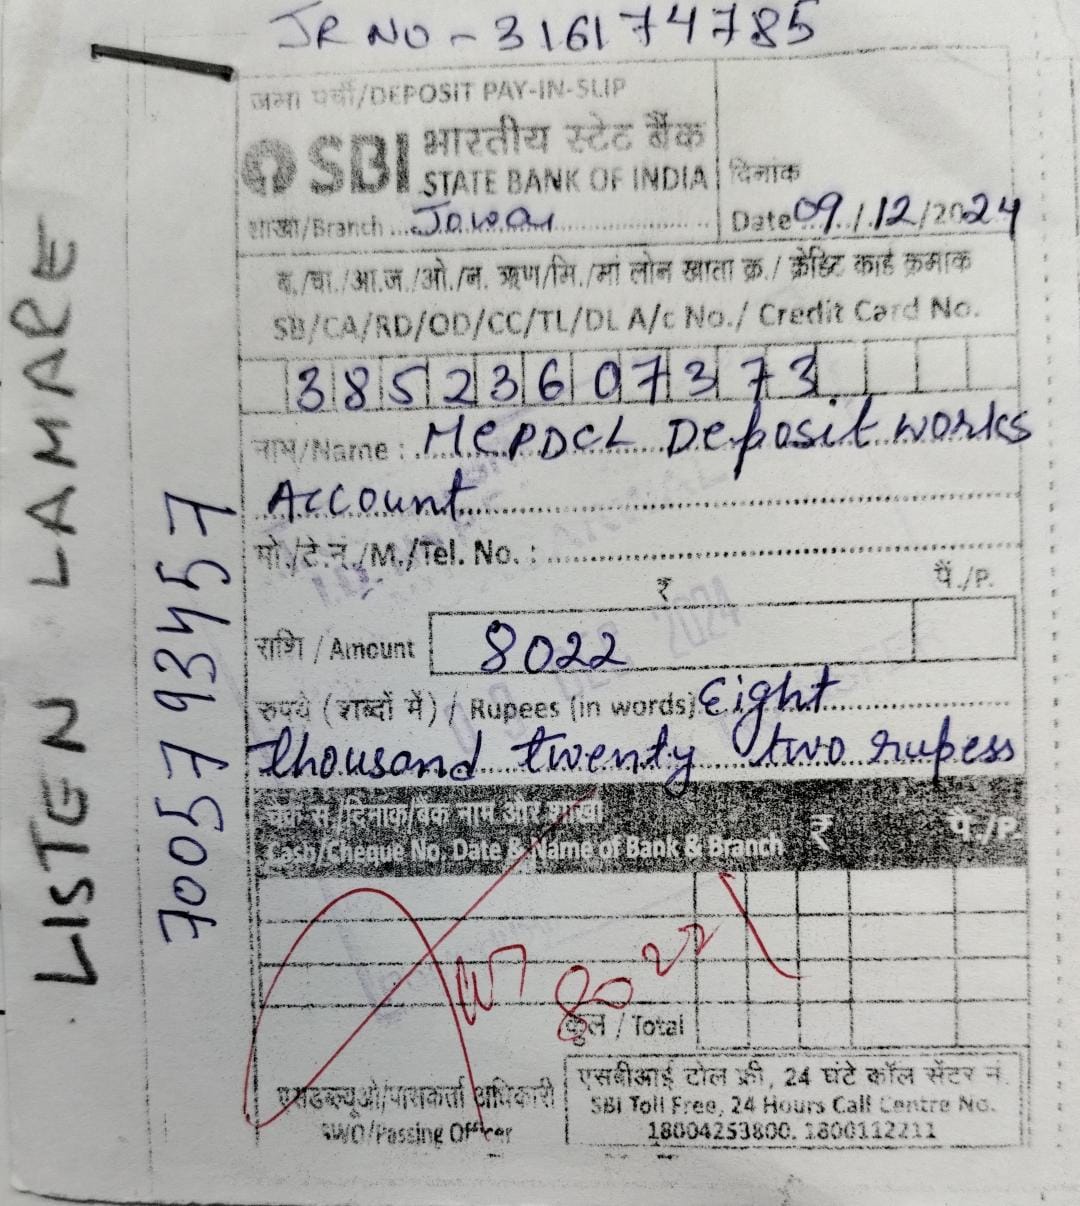 JR NO - 316174785
जमा पर्ची/DEPOSIT PAY-IN-SLIP
SBI भारतीय स्टेट बैंक
STATE BANK OF INDIA
शाखा/Branch ... Jowai
दिनांक
Date 09/12/2024
ब./चा./आ.ज./ओ./न. ऋण/मि./मां लोन खाता क्र./ क्रेडिट कार्ड क्रमांक
SB/CA/RD/OD/CC/TL/DL A/c No./ Credit Card No.
38523607373
नाम/Name : MePDCL Deposit works
Account
मो./टे.नं./M./Tel. No. :
₹ पै./P.
राशि / Amount 8022
रुपये (शब्दों में) / Rupees (in words) Eight
thousand twenty two rupess
चेक सं./दिनांक/बैंक नाम और शाखा ₹ पै./P.
Cash/Cheque No. Date & Name of Bank & Branch
8022
कुल / Total
एसडब्ल्यूओ/पासकर्ता अधिकारी
SWO/Passing Officer
एसबीआई टोल फ्री, 24 घंटे कॉल सेंटर नं.
SBI Toll Free, 24 Hours Call Centre No.
18004253800, 1800112211
LISTEN LAMARE
7005793457